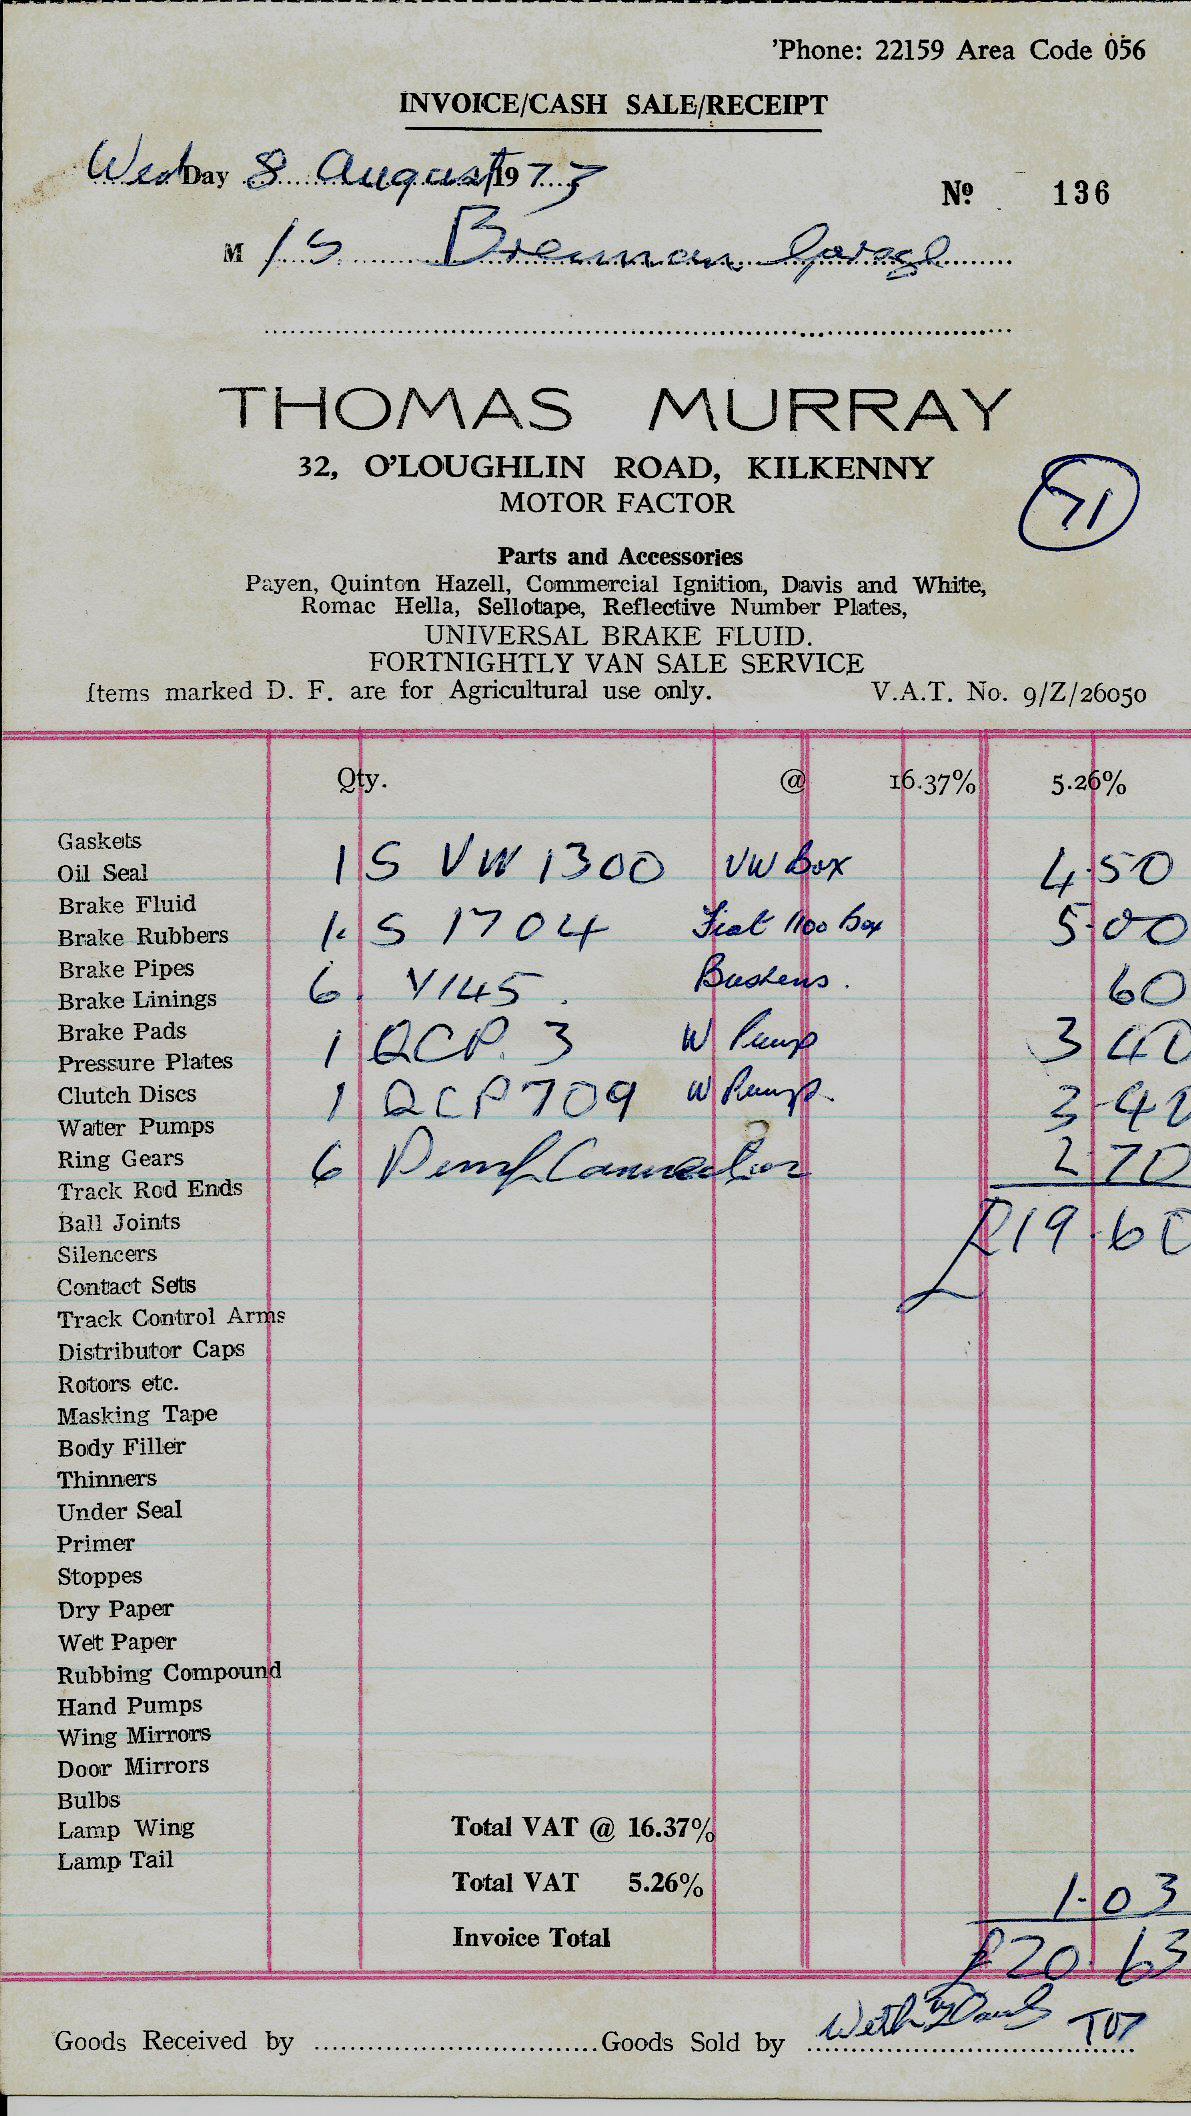 'Phone: 22159 Area Code 056
INVOICE/CASH SALE/RECEIPT
WedDay 8 August 1973
No. 136
M/S Brennan Garage
THOMAS MURRAY
32, O'LOUGHLIN ROAD, KILKENNY
MOTOR FACTOR
71
Parts and Accessories
Payen, Quinton Hazell, Commercial Ignition, Davis and White,
Romac Hella, Sellotape, Reflective Number Plates,
UNIVERSAL BRAKE FLUID.
FORTNIGHTLY VAN SALE SERVICE
Items marked D. F. are for Agricultural use only. V.A.T. No. 9/Z/26050
Qty. @ 16.37% 5.26%
Gaskets
1 S VW 1300 VW Box 4.50
Oil Seal
Brake Fluid
1. S 1704 Fiat 1100 Box 5.00
Brake Rubbers
Brake Pipes
6. V145. Bushens. 60
Brake Linings
Brake Pads
1 QCP. 3 W Pump 3 40
Pressure Plates
Clutch Discs
1 QCP 709 W Pump. 3-40
Water Pumps
Ring Gears
6 Pump Connector 2 70
Track Rod Ends
Ball Joints
£19.60
Silencers
Contact Sets
Track Control Arms
Distributor Caps
Rotors etc.
Masking Tape
Body Filler
Thinners
Under Seal
Primer
Stoppes
Dry Paper
Wet Paper
Rubbing Compound
Hand Pumps
Wing Mirrors
Door Mirrors
Bulbs
Lamp Wing
Total VAT @ 16.37%
Lamp Tail
Total VAT 5.26% 1.03
Invoice Total £20.63
Goods Received by Goods Sold by With